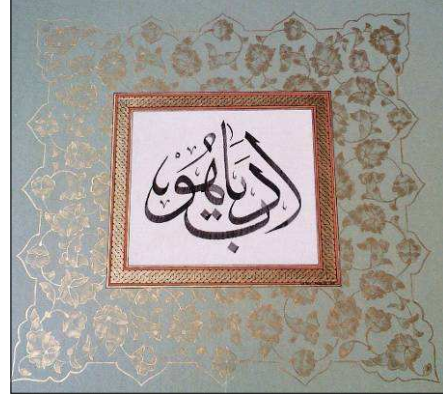 ادب يا هو